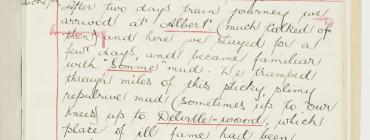 After two days train journey we
arrived at Albert (much talked of
then) and here we stayed for a
few days, and became familiar
with "Somme" mud. We tramped
through miles of this sticky, slimy
repulsive mud (sometimes up to our
knees) up to Delville-wood, which
place of ill fame had been